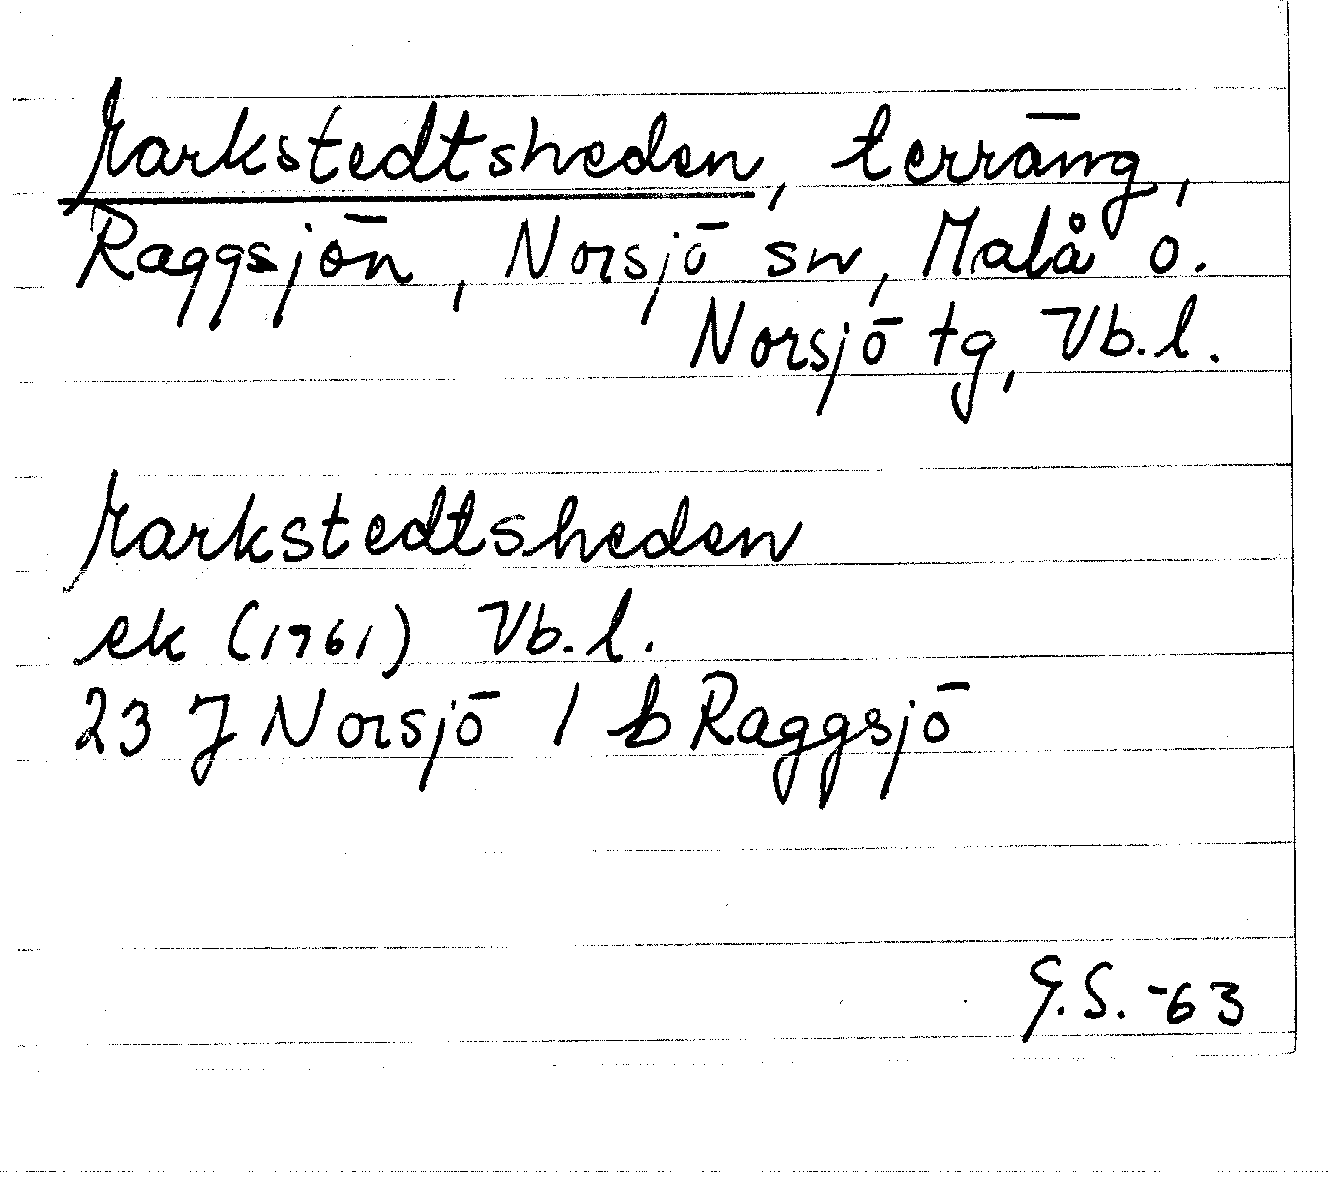 Markstedtsheden, terräng,
Raggsjön, Norsjö sn, Malå o.
Norsjö tg, Vb.l.
Markstedtsheden
ek (1961) Vb.l.
23 J Norsjö / b Raggsjö
G.S. -63